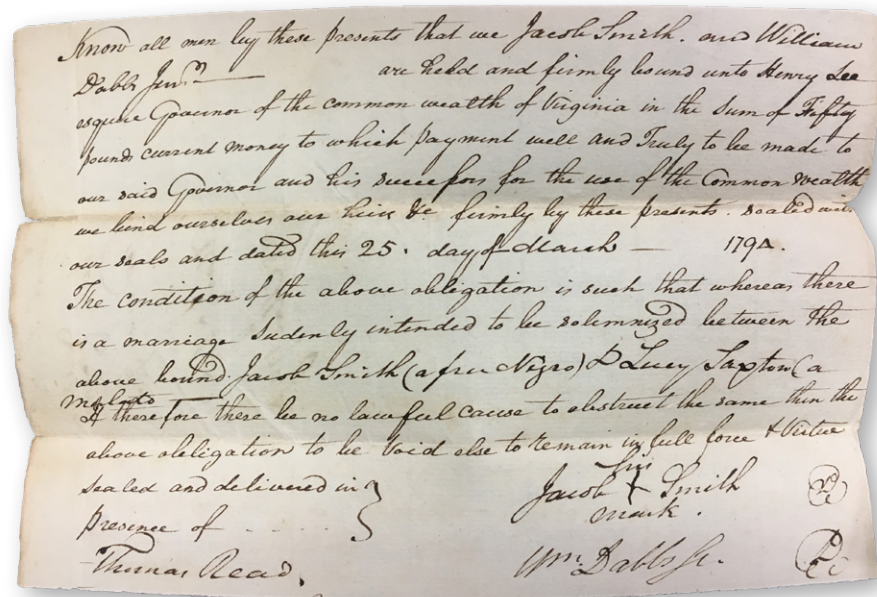 Know all men by these presents that we Jacob Smith. and William
Dabbs Junr are held and firmly bound unto Henry Lee
esquire Governor of the common wealth of Virginia in the Sum of Fifty
pounds current money to which payment well and Truly to be made to
our said Governor and his successors for the use of the Common wealth
we bind ourselves our heirs &c firmly by these presents. sealed with
our seals and dated this 25. day of March — 1794.
The condition of the above obligation is such that whereas there
is a marriage Sudenly intended to be solemnized between the
above bound Jacob Smith (a free Negro) & Lucy Saxton (a
Molatto
If therefore there be no lawful cause to obstruct the same then the
above obligation to be Void else to remain in full force & Virtue
Sealed and delivered in
presence of
his
Jacob X Smith
mark.
Thomas Read.
Wm. Dabbs Jr.